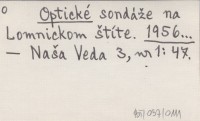 Optické sondáže na
Lomnickom štíte. 1956...
— Naša Veda 3, nr 1: 47.